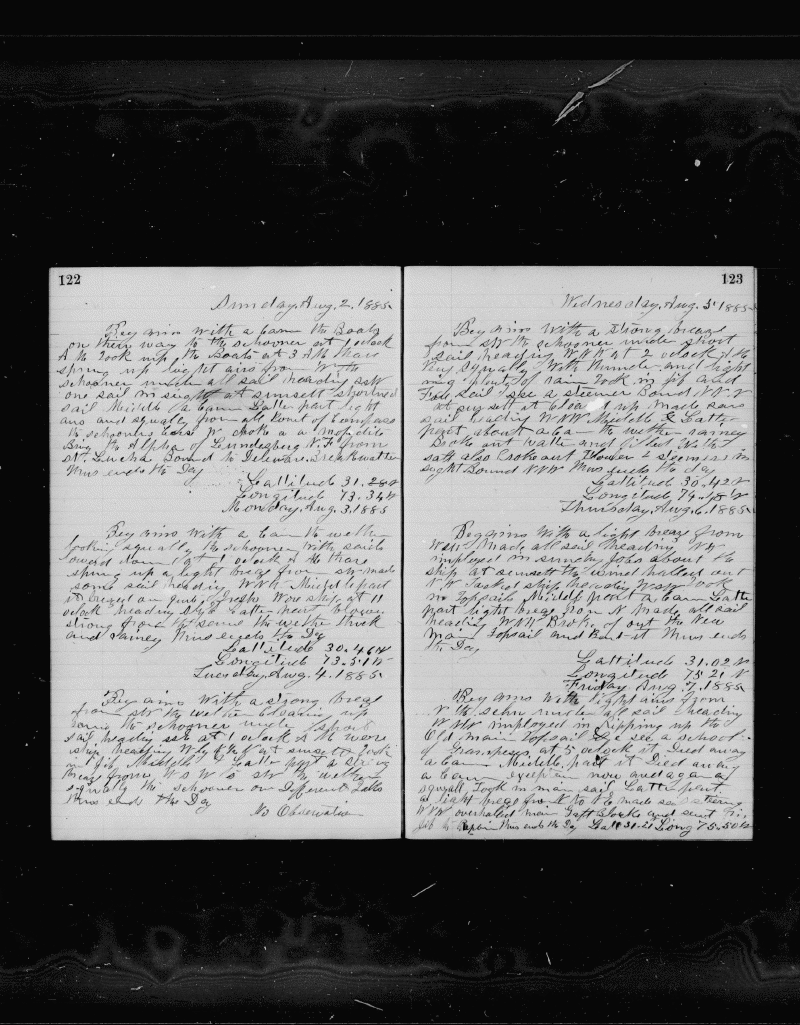 122
Sunday, Aug. 2. 1885
Begains with a Cam the Boats
on their way to the schooner at 1 oclock
A M Took up the Boats at 3 A M thare
spring up light airs from
schooner made all sail heading
one sail in sight at sunsett shortned
sail Middle a Cam Latter part light
airs and squaly from all Point of Compass
the schooner Spoke a
Brig the Alpha of N.F. from
St. Lucha Bound to Deleware Breakwatter
thus ends the Day
Lattitude 31.28 N
Longitude 73.34 W
Monday, Aug. 3. 1885
Begains with a Cam the wether
looking squally the schooner with sails
lowerd down at 1 oclock A M thare
spring up a light breze from made
some sail heading W N W Middle part
it Wore ship at 11
oclock heading Latter part blows
strong from the same the wether thick
and rainey thus ends the Day
Lattitude 30.46 N
Longitude 73.51 W
Tuesday, Aug. 4. 1885
Begains with a strong breze
from SW the wether up
some the schooner under short
sail heading SSE at 1 oclock A M wore
ship heading W by N at sunset Took
in Jib Middle & Latter part a strong
breze from W S W & SW the wether
squally the schooner on Different Tacks
thus ends the Day
No Observation
123
Wednesday, Aug. 5. 1885
Begains with a strong breeze
from SW the schooner under short
sail heading W N W at 2 oclock A M
very squaly with thunder and light
ning plenty of rain Took in jib and
Fore sail see a steemer Bound N.N.
at sunset it cleard up Made sars
sail heading W N W Middle & Latter
part about a Cam the wether rainey
Broke out watter and filled with
salt also Broke out Flower 2 steemers in
sight Bound N N W thus ends the day
Lattitude 30.42 N
Longitude 74.48 W
Thursday, Aug. 6. 1885
Beggins with a light breze from
West Made all sail heading N W
imployed in sundry Jobs about the
ship at sunsett the wind halled out
N W Tacked ship heading Took
in Topsails Middle part a Cam Latter
part light breze from N made all sail
heading W N W Broke out the New
Main Topsail and Bent it thus ends
the Day
Lattitude 31.02 N
Longitude 75.21 W
Friday Aug. 7. 1885
Begains with light airs from
N the Schn under all sail heading
W N W imployed in ripping up the
Old Main Topsail see a school
of Granpeses at 5 oclock it Died away
a Cam Middle part it Died away
a Cam exceptin now and again a
squall Took in main sail Latter part
a light breze from N to N E made sail stering
W N W overhaled main Gaft Blocks and sent
Jib thus ends the Day Latt 31.21 Long 75.50 W